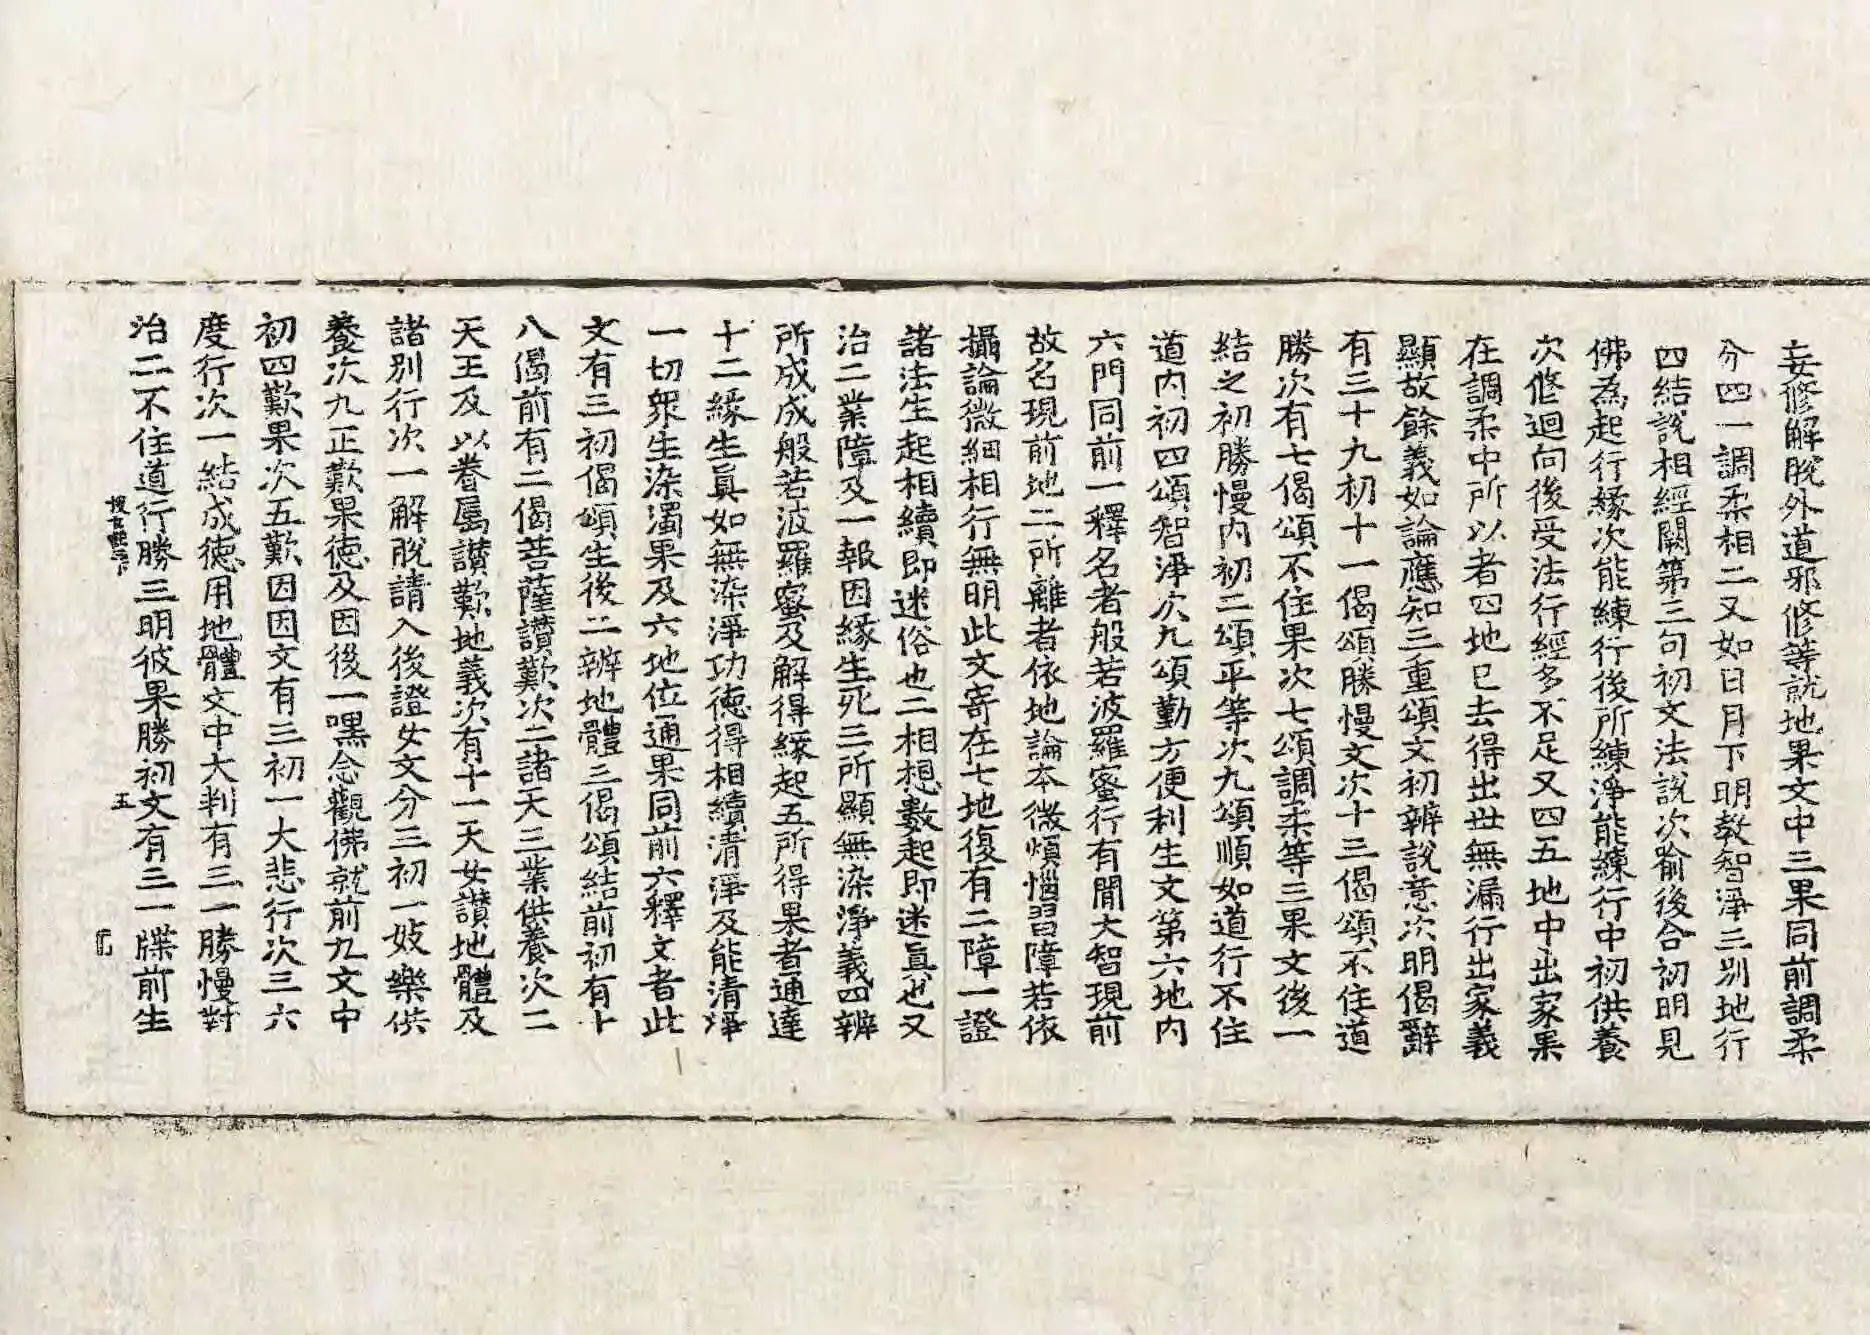 妄修解脫外道邪修等就地果文中三果同前調柔
分四一調柔相二又如日月下明教智淨三別地行
四結說相經闕第三句初文法說次喻後合初明見
佛為起行緣次能練行後所練淨能練行中初供養
次修迴向後受法行經多不足又四五地中出家果
在調柔中所以者四地已去得出世無漏行出家義
顯故餘義如論應知三重頌文初辨說意次明偈辭
有三十九初十一偈頌勝慢文次十三偈頌不住道
勝次有七偈頌不住果次七頌調柔等三果文後一
結之初勝慢內初二頌平等次九頌順如道行不住
道內初四頌智淨次九頌勤方便利生文第六地內
六門同前一釋名者般若波羅蜜行有間大智現前
故名現前地二所離者依地論本微煩惱習障若依
攝論微細相行無明此文寄在七地復有二障一證
諸法生起相續即迷俗也二相想數起即迷真也又
治二業障及一報因緣生死三所顯無染淨義四辨
所成成般若波羅蜜及解得緣起五所得果者通達
十二緣生真如無染淨功德得相續清淨及能清淨
一切眾生染濁果及六地位通果同前六釋文者此
文有三初偈頌生後二辨地體三偈頌結前初有十
八偈前有二偈菩薩讚歎次二諸天三業供養次二
天王及以眷屬讚歎地義次有十一天女讚地體及
諸別行次一解脫請入後證女文分三初一妓樂供
養次九正歎果德及因後一嘿念觀佛就前九文中
初四歎果次五歎因因文有三初一大悲行次三六
度行次一結成德用地體文中大判有三一勝慢對
治二不住道行勝三明彼果勝初文有三一牒前生
搜玄四下
五